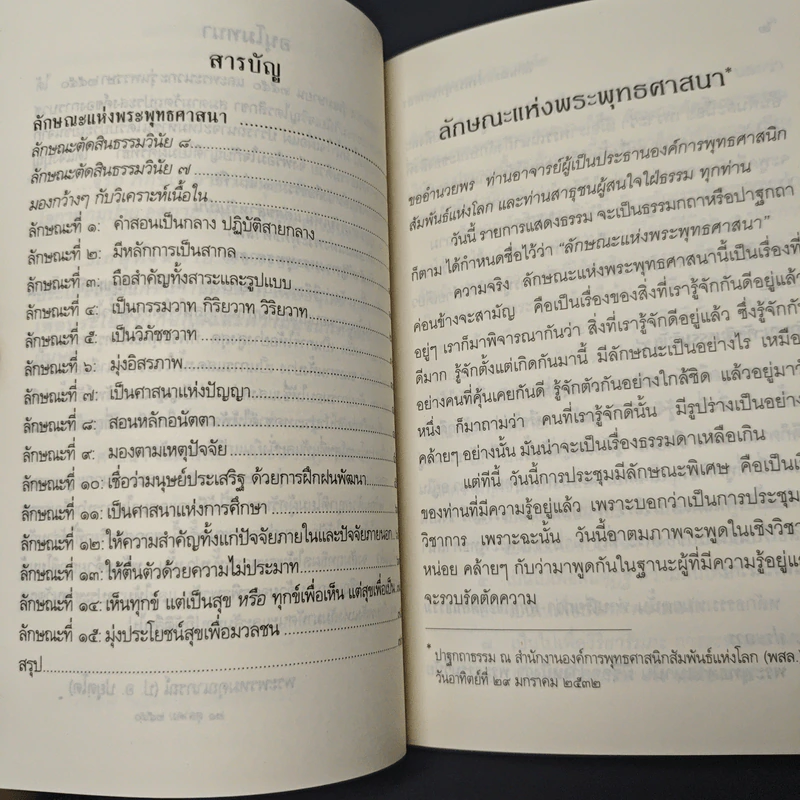 สารบัญ
ลักษณะแห่งพระพุทธศาสนา
ลักษณะตัดสินธรรมวินัย ๘
ลักษณะตัดสินธรรมวินัย ๗
มองกว้างๆ กับวิเคราะห์เนื้อใน
ลักษณะที่ ๑: คำสอนเป็นกลาง ปฏิบัติสายกลาง
ลักษณะที่ ๒: มีหลักการเป็นสากล
ลักษณะที่ ๓: ถือสำคัญทั้งสาระและรูปแบบ
ลักษณะที่ ๔: เป็นกรรมวาท กิริยวาท วิริยวาท
ลักษณะที่ ๕: เป็นวิภัชชวาท
ลักษณะที่ ๖: มุ่งอิสรภาพ
ลักษณะที่ ๗: เป็นศาสนาแห่งปัญญา
ลักษณะที่ ๘: สอนหลักอนัตตา
ลักษณะที่ ๙: มองตามเหตุปัจจัย
ลักษณะที่ ๑๐: เชื่อว่ามนุษย์ประเสริฐ ด้วยการฝึกฝนพัฒนา
ลักษณะที่ ๑๑: เป็นศาสนาแห่งการศึกษา
ลักษณะที่ ๑๒: ให้ความสำคัญทั้งแก่ปัจจัยภายในและปัจจัยภายนอก
ลักษณะที่ ๑๓: ให้ตื่นตัวด้วยความไม่ประมาท
ลักษณะที่ ๑๔: เห็นทุกข์ แต่เป็นสุข หรือ ทุกข์เพื่อเห็น แต่สุขเพื่อเป็น
ลักษณะที่ ๑๕: มุ่งประโยชน์สุขเพื่อมวลชน
สรุป
ลักษณะแห่งพระพุทธศาสนา*
ขออำนวยพร ท่านอาจารย์ผู้เป็นประธานองค์การพุทธศาสนิก
สัมพันธ์แห่งโลก และท่านสาธุชนผู้สนใจใฝ่ธรรม ทุกท่าน
วันนี้ รายการแสดงธรรม จะเป็นธรรมกถาหรือปาฐกถา
ก็ตาม ได้กำหนดชื่อไว้ว่า “ลักษณะแห่งพระพุทธศาสนา”
ความจริง ลักษณะแห่งพระพุทธศาสนานี้เป็นเรื่องที่
ค่อนข้างจะสามัญ คือเป็นเรื่องของสิ่งที่เรารู้จักกันดีอยู่แล้ว
อยู่ๆ เราก็มาพิจารณากันว่า สิ่งที่เรารู้จักดีอยู่แล้ว ซึ่งรู้จักกัน
ดีมาก รู้จักตั้งแต่เกิดกันมานี้ มีลักษณะเป็นอย่างไร เหมือ
อย่างคนที่คุ้นเคยกันดี รู้จักตัวกันอย่างใกล้ชิด แล้วอยู่มาวั
หนึ่ง ก็มาถามว่า คนที่เรารู้จักดีนั้น มีรูปร่างเป็นอย่าง
คล้ายๆ อย่างนั้น มันน่าจะเป็นเรื่องธรรมดาเหลือเกิน
แต่ทีนี้ วันนี้การประชุมมีลักษณะพิเศษ คือเป็นเ
ของท่านที่มีความรู้อยู่แล้ว เพราะบอกว่าเป็นการประชุม
วิชาการ เพราะฉะนั้น วันนี้อาตมภาพจะพูดในเชิงวิชา
หน่อย คล้ายๆ กับว่ามาพูดกันในฐานะผู้ที่มีความรู้อยู่แ
จะรวบรัดตัดความ
* ปาฐกถาธรรม ณ สำนักงานองค์การพุทธศาสนิกสัมพันธ์แห่งโลก (พสล.)
วันอาทิตย์ที่ ๒๙ มกราคม ๒๕๓๒